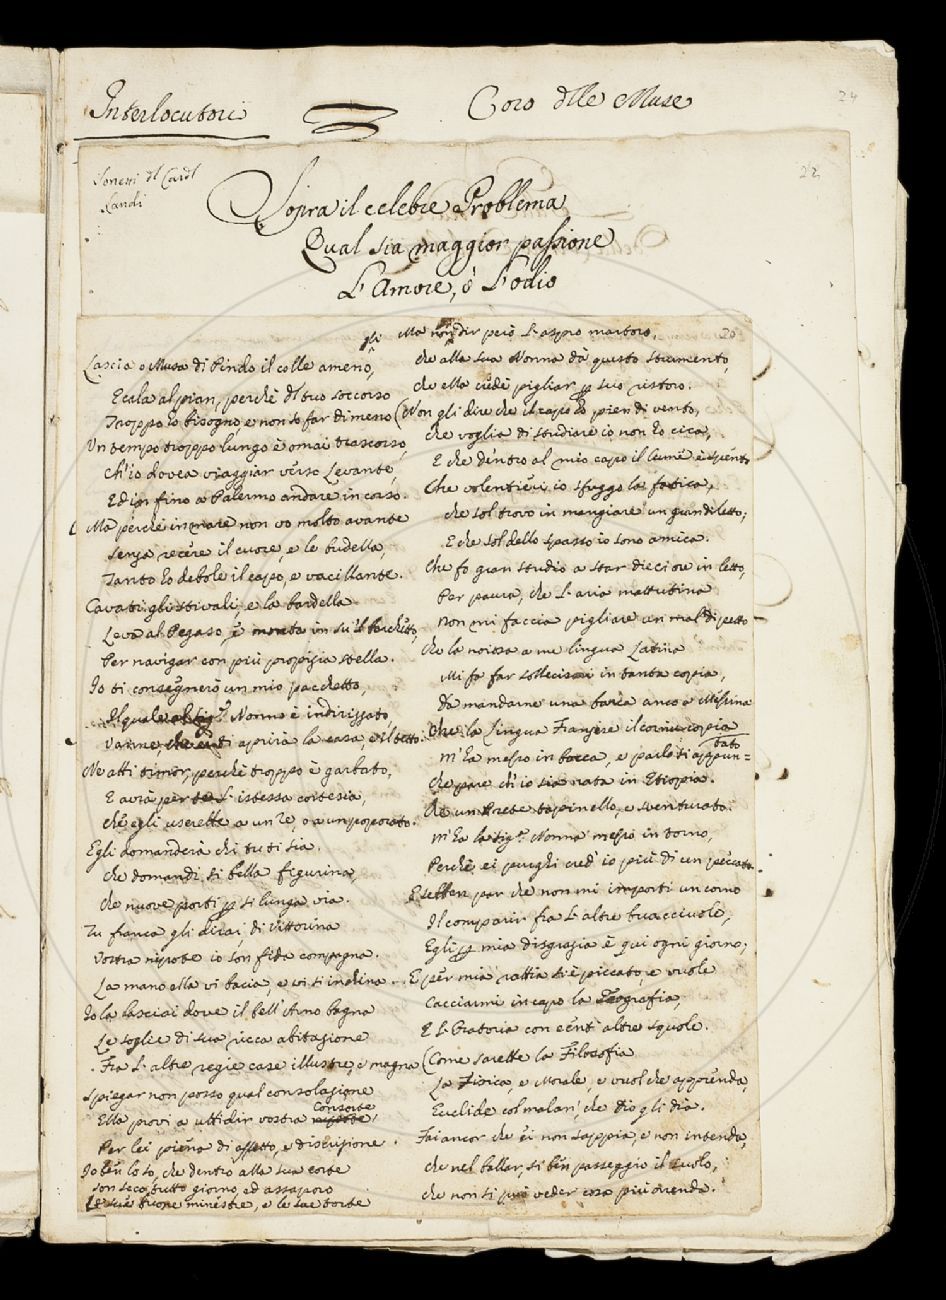 Interlocutori
Coro dlle Muse
24
Sonetti dl Cardl
Landi
22
Sopra il celebre Problema
Qual sia maggior passione
L'Amore, ò L'odio
20
Lascia o Musa di Pindo il colle ameno,
E cala al pian, perchè dl tuo soccorso
Troppo ho bisogno e non so far di meno
Un tempo troppo lungo è omai trascorso,
Ch'io dovea viaggiar verso Levante,
Ed in fino a Palermo andare in corso.
Ma perchè in mare non vo molto avante
Senza recere il cuore, e le budella,
Tanto ho debole il capo, e vacillante.
Cavati gli stivali, e la bardella
Leva al Pegaso, e monta in su'l barchetto,
Per navigar con più propizia stella.
Io ti consegnerò un mio pacchetto,
Il quale Nonno è indirizzato,
Vanne, che ti aprirà la casa, e il tetto.
No atti timor, perchè troppo è garbato,
E avrà per te L'istessa cortesia,
Ch'egli userebbe a un Re, o a un porporato.
Egli domanderà chi tu ti sia.
Che domandi sì bella figurina,
Che nuove porti p sì lunga via.
Tu franca gli dirai, di Vittorina
Vostra nipote io son fida compagna.
La mano ella vi bacia, e vi s'inclina.
Io la lasciai dove il bell'Arno bagna
Le soglie di sua ricca abitazione
Fra L'altre regie case illustre, e magna
Spiegar non posso qual consolazione
Ella provi a utti dir vostra Consorte
Per lei piena di affetto, e discrizione.
Io ben lo so, che dentro alla sua corte
Son seco tutto giorno, ed assaporo
Le sue buone minestre, e le sue torte
Ma non gli dir però L'aspro martoro,
Che alla sua Nonna dà questo strumento,
Che ella crede pigliar p suo ristoro.
(Non gli dire che il capo ho pien di vento,
Che voglia di studiare io non ho cica,
E che dentro al mio capo il lume è spento
Che volentieri io sfuggo la fatica,
Che sol trovo in mangiare un gran diletto;
E che sol dello spasso io sono amica.
Che fo gran studio a star dieci ore in letto,
Per paura, che L'aria mattutina
Non mi faccia pigliare un mal di petto
Che la noiosa a me lingua Latina
Mi fa far sollecismi in tanta copia,
Da mandarne una barca anco a Messina
Che la Lingua Franzese il cornucopia
M'ha messo in bocca, e parlo ti appun=
tato
Che pare ch'io sia nata in Etiopia.
Che un Prete tapinello, e sventurato
M'ha la Sig.ra Nonna messo in torno,
Perchè ei purghi cred'io più di un peccato.
E sebben par che non mi importi un corno
Il comparir fra L'altre bracciuole,
Egli p mia disgrazia è qui ogni giorno;
E per mia rabbia si è piccato, e vuole
Cacciarmi in capo la Geografia,
E L'Oratoria con cent'altre squole.
(Come sarebbe la Filosofia
La Fisica, e Morale, e vuol che apprenda,
Euclide col malan', che Dio gli dia.
Fai ancor che ei non sappia, e non intenda,
Che nel ballar, sì ben passeggio il suolo,
Che non si può veder cosa più orrenda.